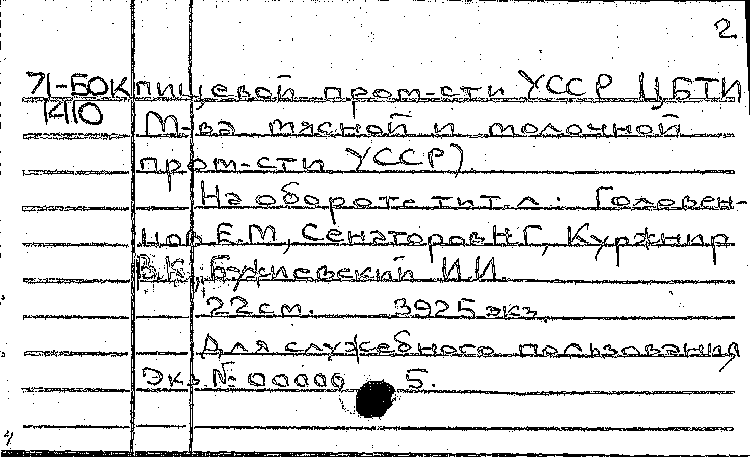 2
71-БОК пищевой пром-сти УССР ЦБТИ
1410
М-ва мясной и молочной
пром-сти УССР)
На обороте тит. л.: Головен-
цов Е.М, Сенаторов Н.Г, Куржнир
В.К, Бужиевский И.И.
22 см. 3925 экз.
Для служебного пользования
Экз. № 00000 5.